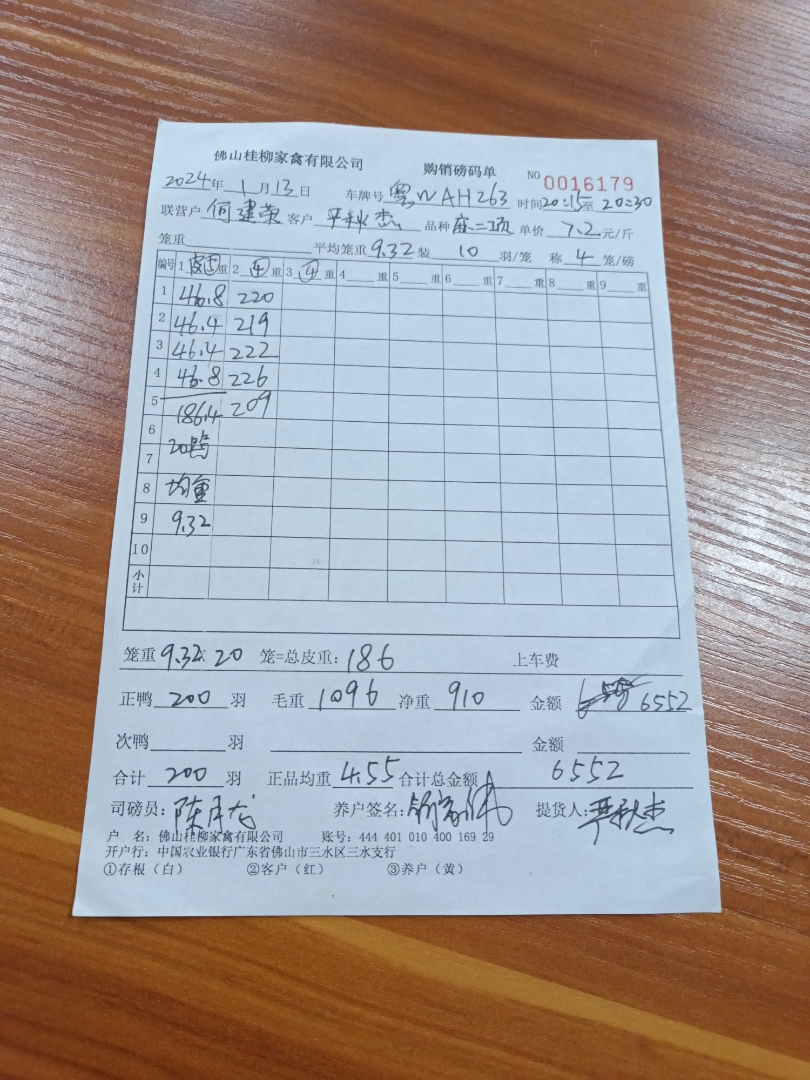 佛山桂柳家禽有限公司 购销磅码单 NO 0016179
2024年 1月13日 车牌号 粤WAH263 时间20:15至20:30
联营户 何建荣 客户 严秋杰 品种 麻二 单价 7.2元/斤
笼重 平均笼重9.32装 10 羽/笼 称 4 笼/磅
编号 1 皮 重 2 ④ 重 3 ④ 重 4 重 5 重 6 重 7 重 8 重 9 重
1 46.8 220
2 46.4 219
3 46.4 222
4 46.8 226
5 186.4 209
6 20
7
8 均重
9 9.32
10
小计
笼重9.32×20 笼=总皮重:186 上车费
正鸭 200 羽 毛重 1096 净重 910 金额 6552
次鸭 羽 金额
合计 200 羽 正品均重 4.55 合计总金额 6552
司磅员: 养户签名: 提货人:严秋杰
户 名: 佛山桂柳家禽有限公司 账号: 444 401 010 400 169 29
开户行: 中国农业银行广东省佛山市三水区三水支行
①存根(白) ②客户(红) ③养户(黄)